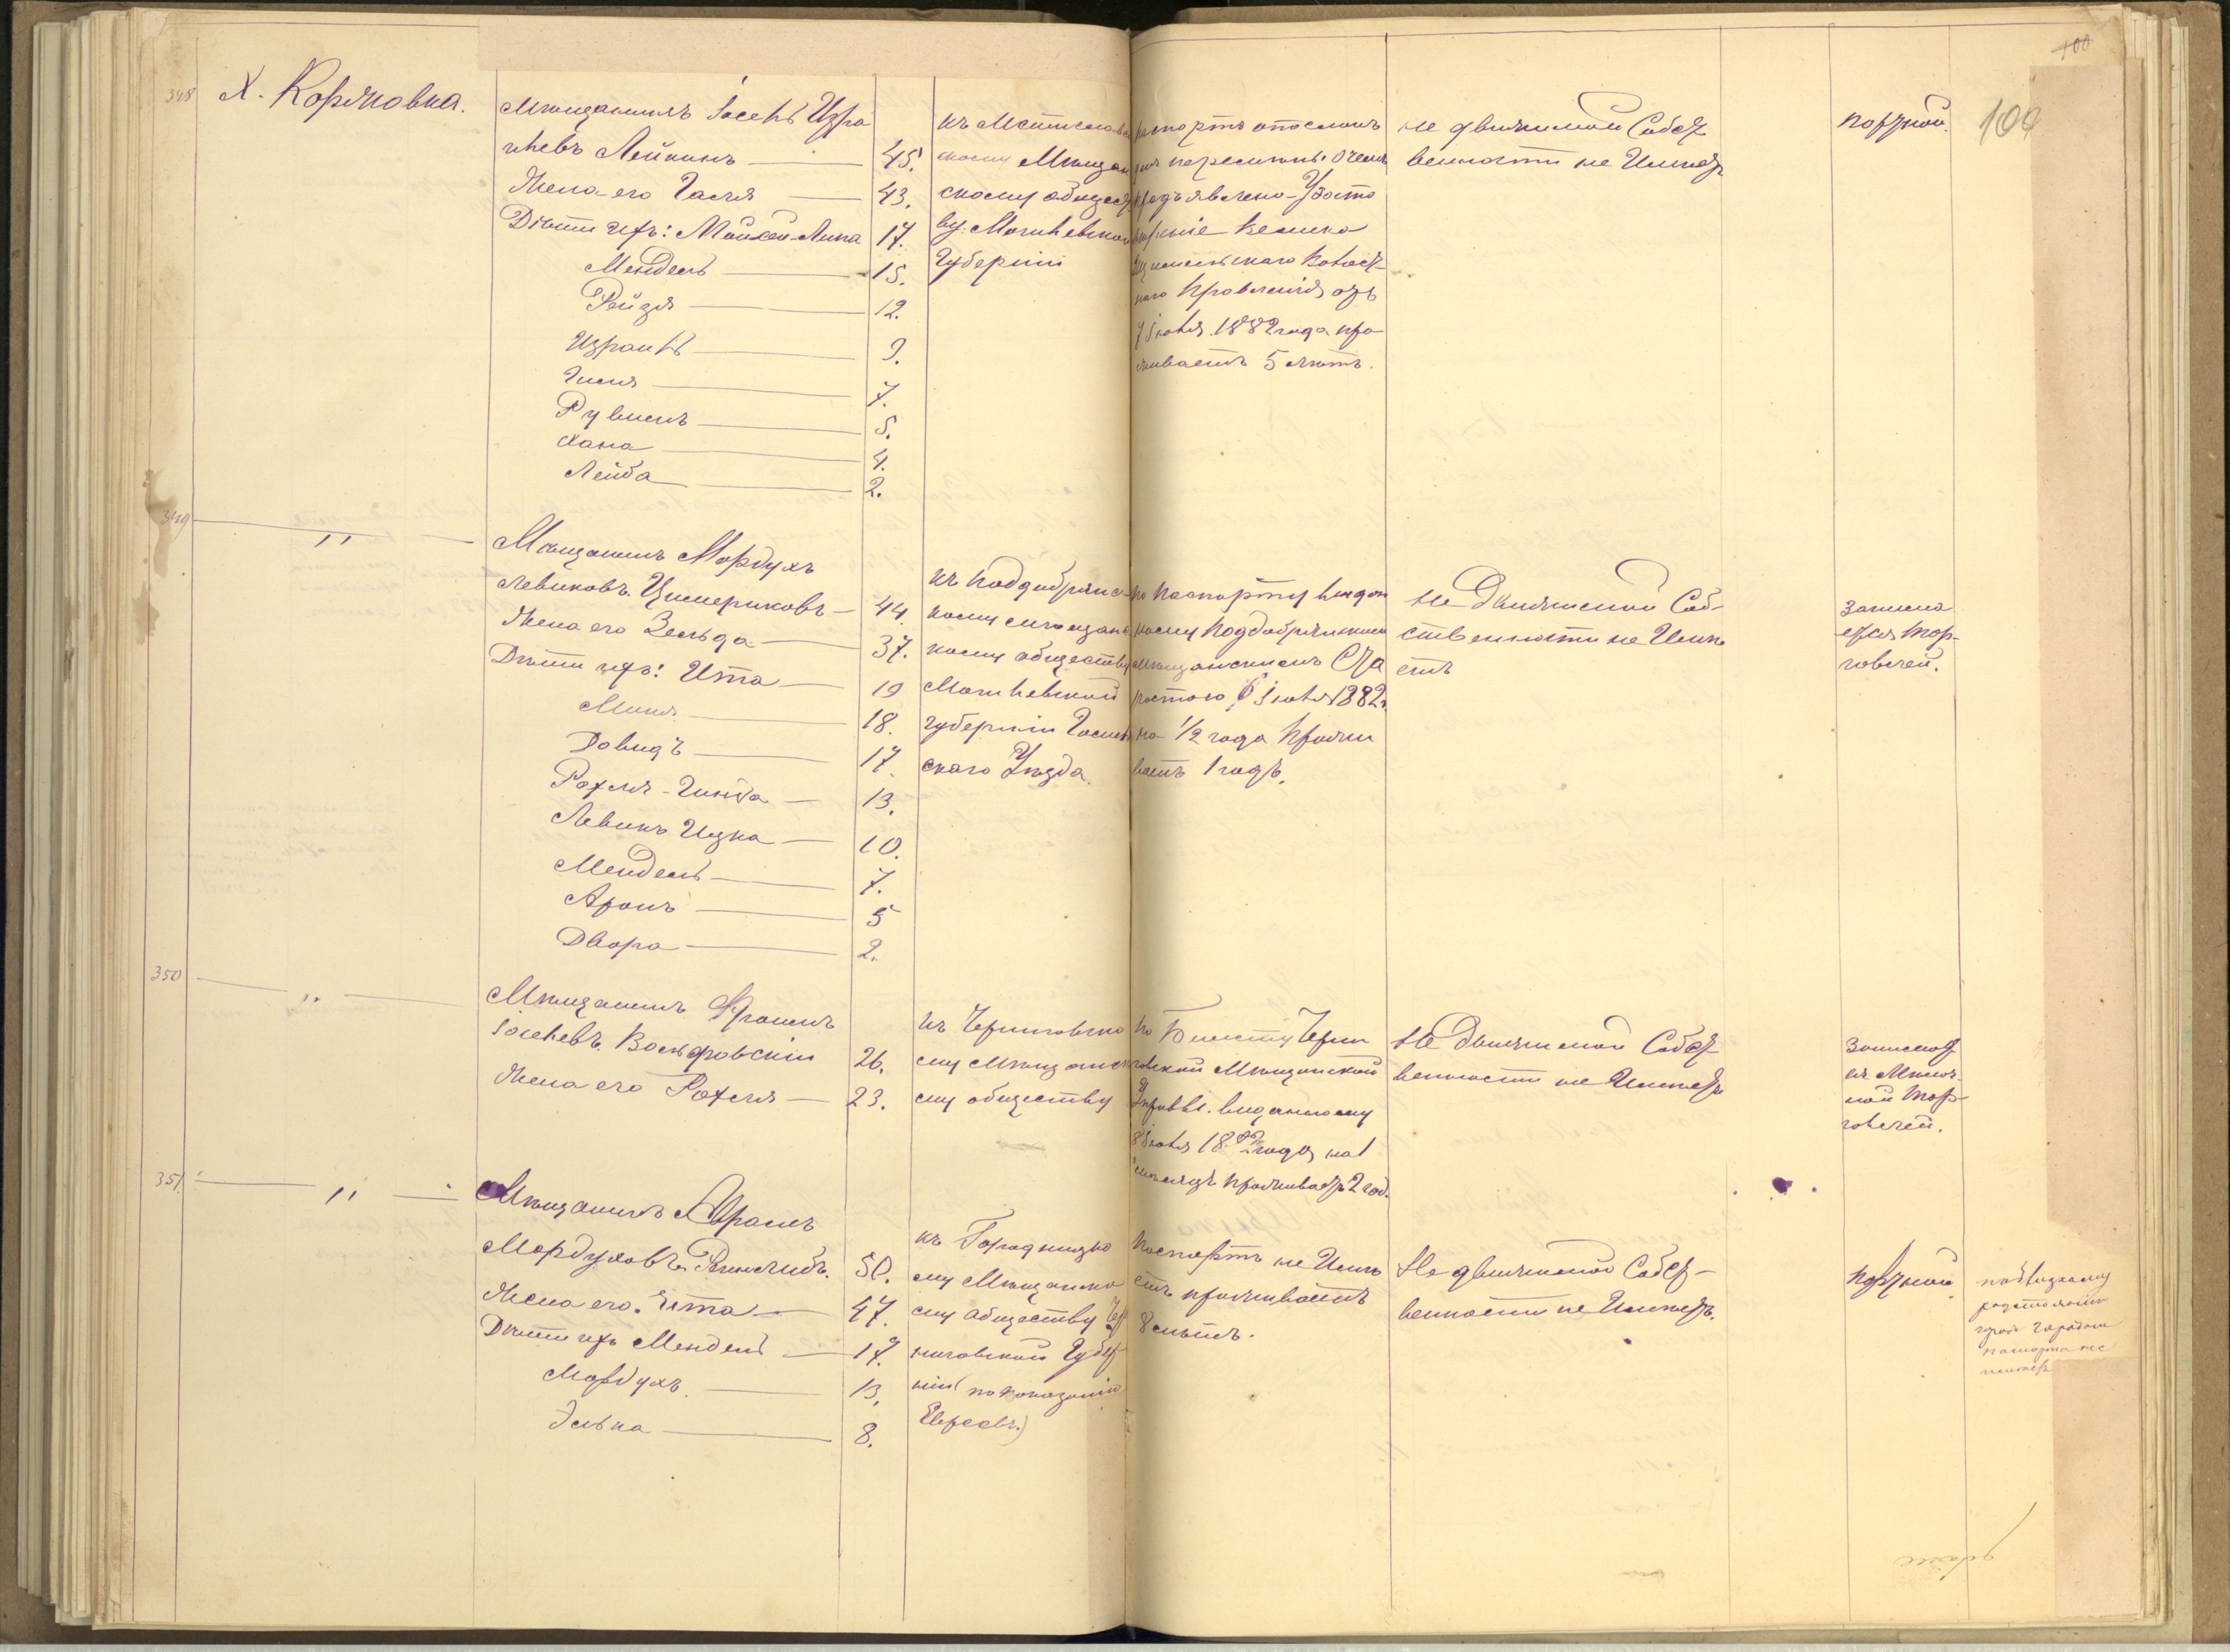 100
100
348
Х. Коржовка.
Мѣщанинъ Іосель Изра
илевъ Лейкинъ — 45.
Жена его Гася — 43.
Дѣти ихъ: 17.
Мендель — 15.
Рейзя — 12.
Израиль — 9.
7.
Рувимъ — 5.
Хана — 4.
Лейба — 2.
къ Мстислав
скому Мѣщан
скому общест
ву. Могилевской
Губерніи
паспортъ отосланъ
для перемѣны о чемъ
предъявлено Удосто
вѣреніе
Волост
наго Правленія отъ
7 Іюля 1882 года про
живаетъ 5 лѣтъ.
не движимой Собст
венности не Имѣет
портной.
349
〃
Мѣщанинъ Мордухъ
Левиковъ Цимериковъ — 44.
Жена его Зельда — 37.
Дѣти ихъ: Ита — 19
18.
Давидъ — 17.
Рохля- 13.
Левикъ Ицка — 10.
Мендель — 7.
Аронъ — 5
Двора — 2.
къ Поддобрянс
кому мѣщанс
кому обществу
Могилевской
губерніи Гомель
скаго Уѣзда.
по паспорту выдан
ному Поддобрянскимъ
мѣщанскимъ Ста
ростою 6 Іюля 1882 г.
на 1/2 года Прожи
ваетъ 1 годъ.
Не Движимой Соб-
ственности не Имѣ
етъ
занима
ется тор-
говлей.
350
〃
Мѣщанинъ
Іоселевъ 26.
Жена его Рохля — 23.
къ Черниговско
му Мѣщанск
му обществу
по Билету Черни
говской Мѣщанской
Управы. выданному
8 Іюля 1882 года на 1
мѣсяцъ проживаетъ 2 год.
Не Движимой Собст
венности не Имѣетъ
Занимает
ся Мелоч
ной тор-
говлей.
351
〃
Мѣщанинъ Абрамъ
Мордуховъ 50.
Жена его Ита — 47.
Дѣти ихъ Мендель — 17.
Мордухъ — 13.
Элька — 8.
къ Городницко
му Мѣщанско
му обществу Чер
ниговской Губер
ніи (по показанію
Евреевъ.)
Паспортъ не Имѣ
етъ проживаетъ
8 лѣтъ.
Не движимой Собст-
венности не Имѣетъ.
Портной
паспорта не
имѣетъ